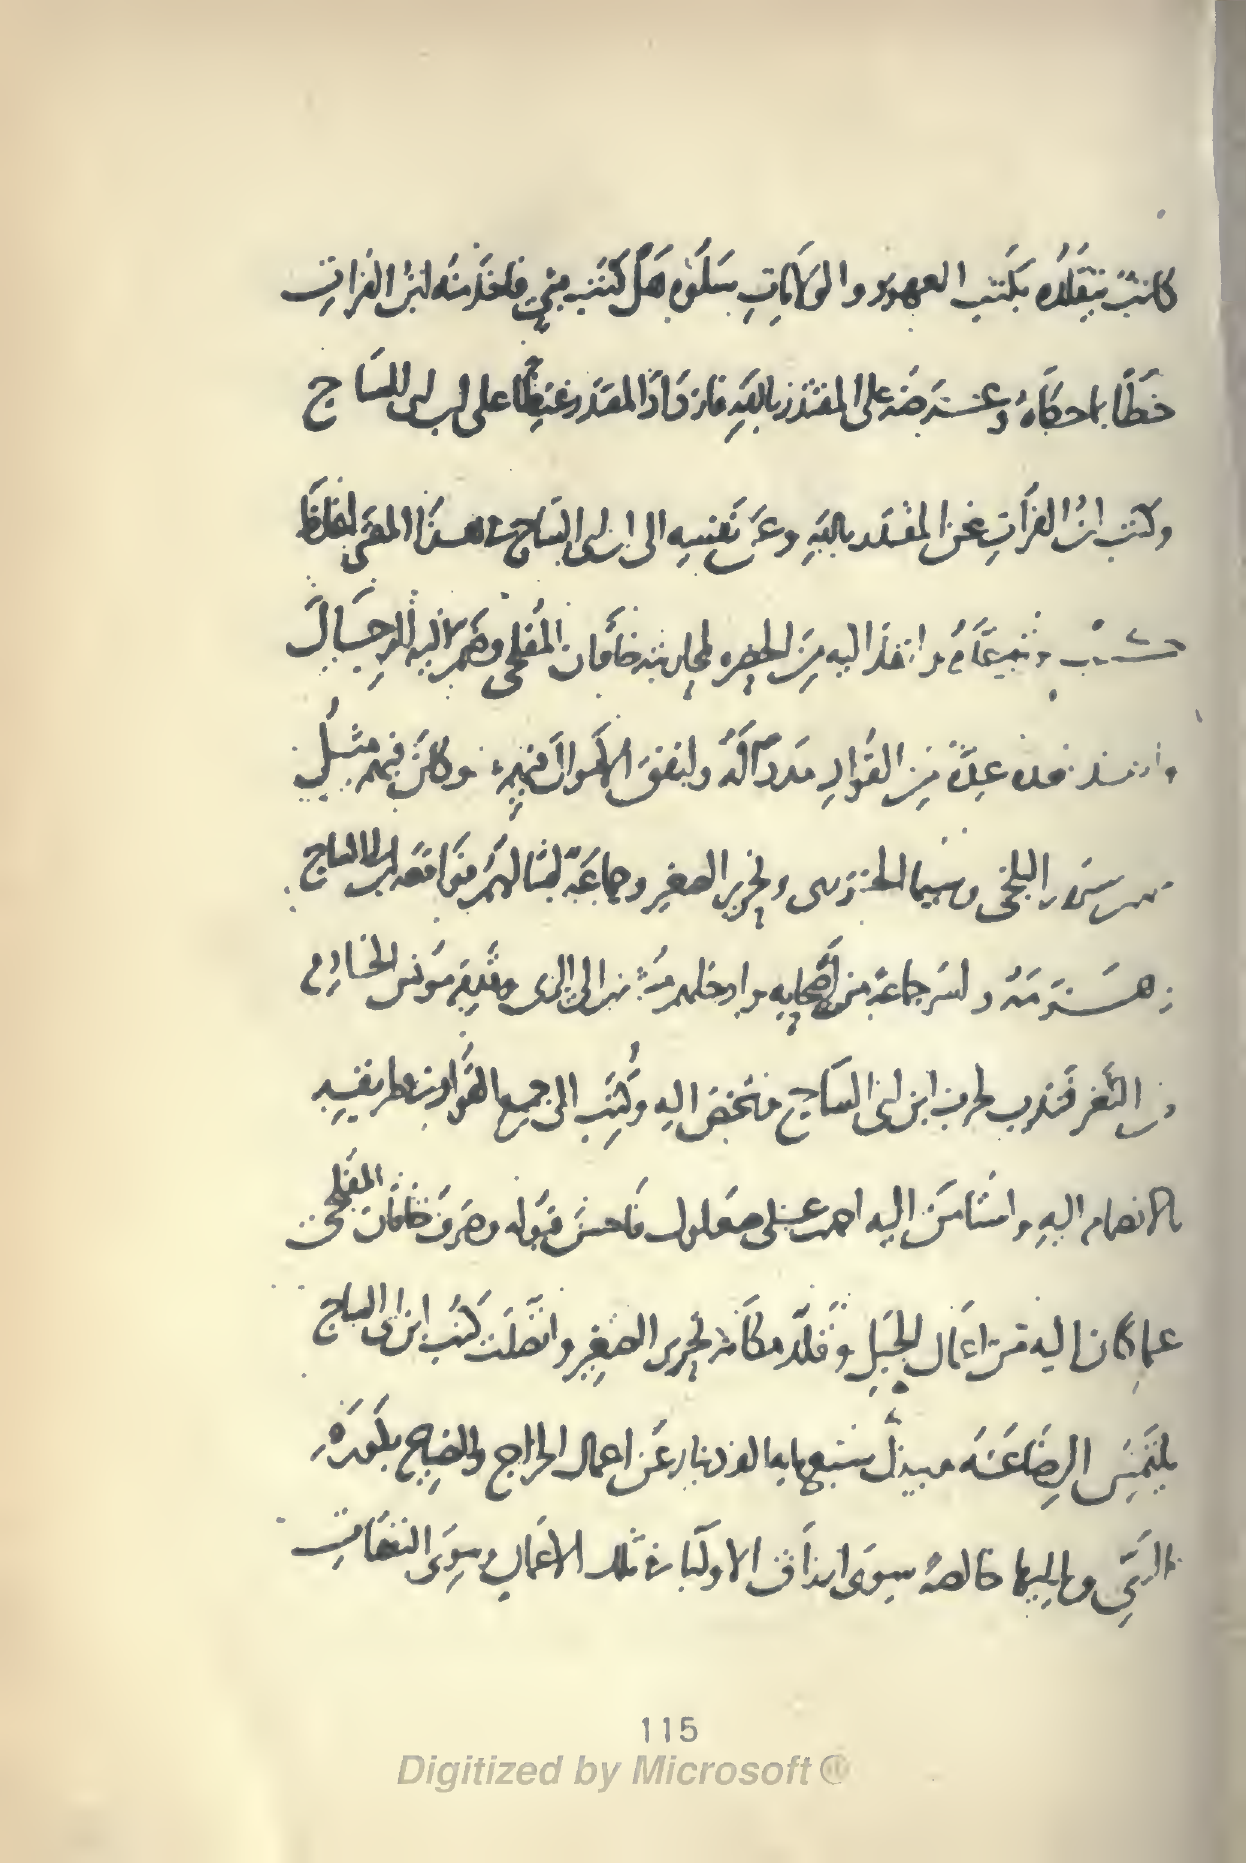 كانت بتقلده بكتب العهود والولايات سلوه هل كتبت فأخذ منه ابن الفرات
خطًا بما حكاه وعرضه على المقتدر بالله فازداد المقتدر غيظًا على ابن ابى الساج
وكتب ابن الفرات عن المقتدر بالله وعن نفسه الى ابن ابى الساج فى هذا المعنى اغلظ
كتب وانفذ اليه من الحضره لمحاربته خاقان المفلحى وضم اليه الرجال
بعده عدة من القواد مددًا له وانفق الاموال فيهم وكان فيهم مثل
البلخى وسيما الخزرى ونحرير الصغير وجماعة امثالهم فواقعه ابن ابى الساج
فهزمه واسر جماعة من أصحابه وادخلهم الى الرى وقدم مونس الخادم
من الثغر فندب لحرب ابن ابى الساج فشخص اليه وكتب الى جميع القواد فى طريقه
بالانضمام اليه واستامن اليه احمد بن على صعلوك فاحسن قبوله وصرف خاقان المفلحى
عما كان اليه من اعمال الجبل وقلد مكانه نحرير الصغير واتصلت كتب ابن ابى الساج
يلتمس الرضا عنه ويبذل سبعمايه الف دينار عن اعمال الخراج والضياع بكورة
الرى وما يليها خالصة سوى ارزاق الاوليا فى تلك الاعمال وسوى النفقات
115
Digitized by Microsoft ®